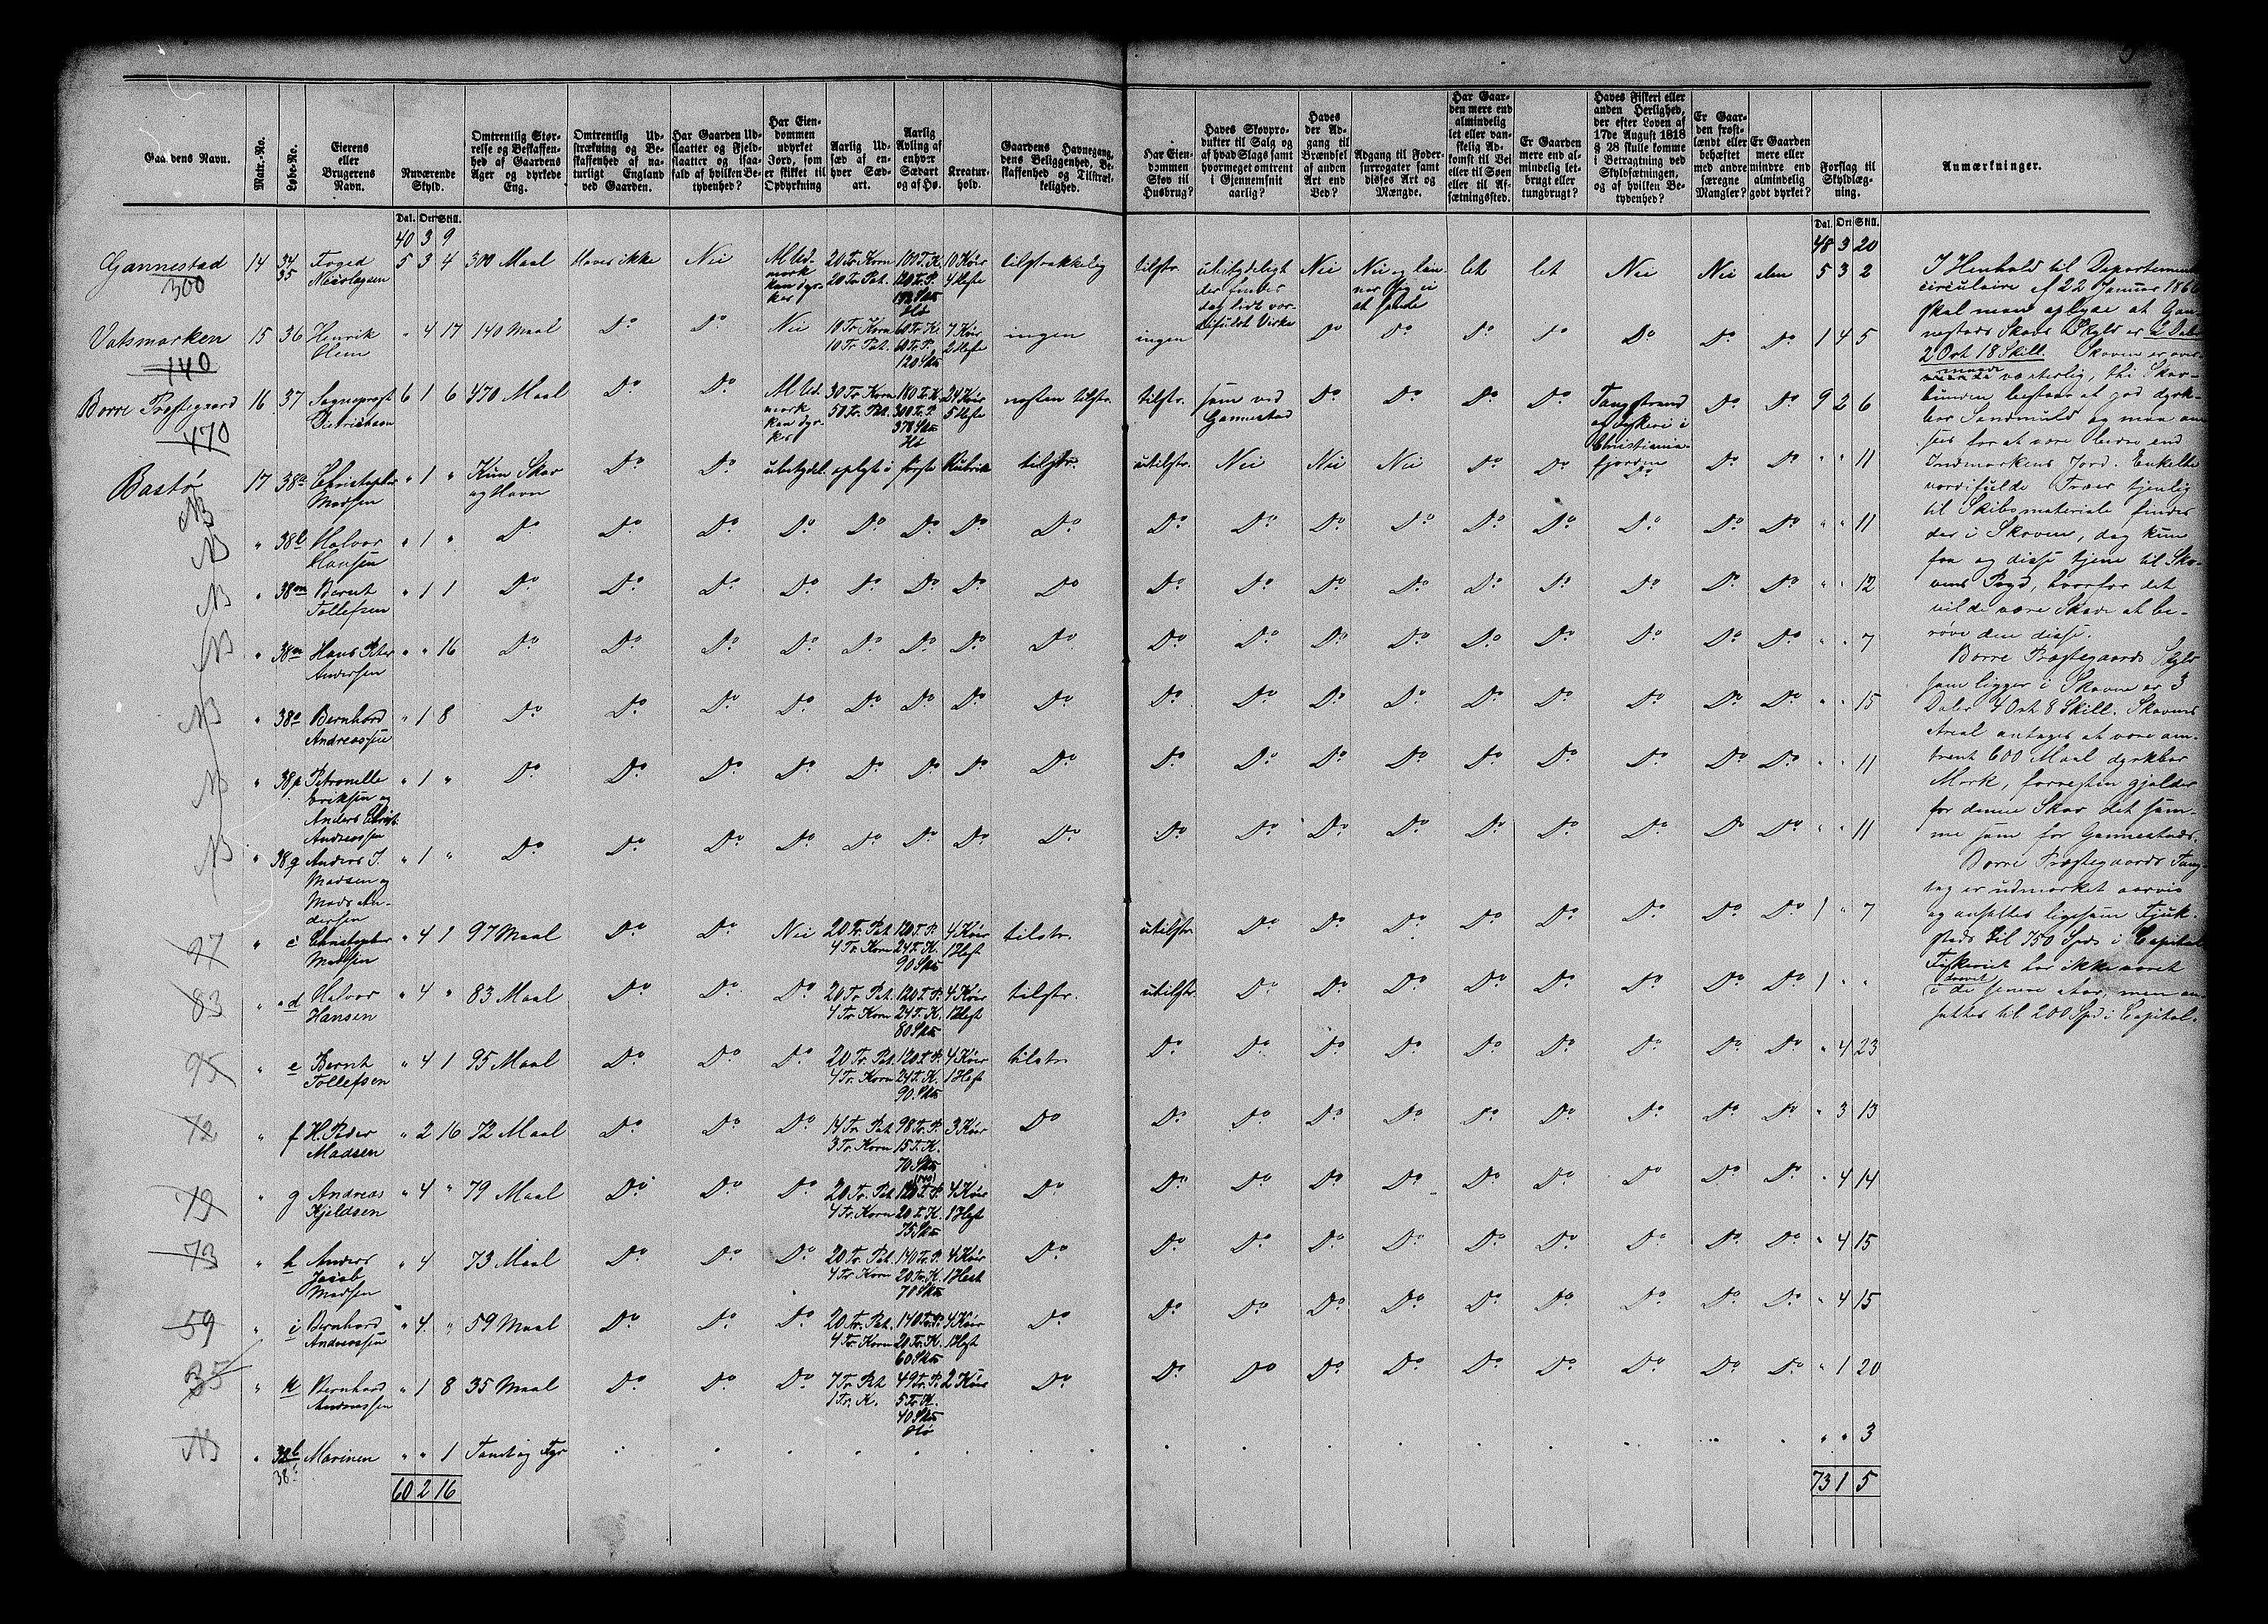 Gaardens Navn.
Matr.-No.
Løbe-No.
Eierens eller Brugerens Navn.
Nuværende Skyld.
Omtrentlig Størrelse og Beskaffenhed af Gaardens Ager og dyrkede Eng.
Omtrentlig Udstrækning og Beskaffenhed af naturligt England ved Gaarden.
Har Gaarden Udslaatter og Fjeldslaatter og isaafald af hvilken Betydenhed?
Har Eiendommen udyrket Jord, som er skikket til Opdyrkning
Aarlig Udsæd af enhver Sædart.
Aarlig Avling af enhver Sædart og af Hø.
Kreaturhold.
Gaardens Havnegang, dens Beliggenhed, Beskaffenhed og Tilstrækkelighed.
Har Eiendommen Skov til Husbrug?
Haves Skovprodukter til Salg og af hvad Slags samt hvormeget omtrent i Gjennemsnit aarlig?
Haves der Adgang til Brændsel af anden Art end Ved?
Adgang til Fodersurrogater samt disses Art og Mængde.
Har Gaarden mere end almindelig let eller vanskelig Adkomst til Vei eller til Søen eller til Afsætningssted.
Er Gaarden mere end almindelig letbrugt eller tungbrugt?
Haves Fiskeri eller anden Herlighed, der efter Loven af 17de August 1818 § 28 skulle komme i Betragtning ved Skyldsætningen, og af hvilken Betydenhed?
Er Gaarden frostlændt eller behæftet med andre særegne Mangler?
Er Gaarden mere eller mindre end almindelig godt dyrket?
Forslag til Skyldlægning.
Anmærkninger.
Dal. Ort Skill.
40 3 9
Dal. Ort Skill.
48 3 20
Gannestad 14 34 35 Foged Nicolaysen 5 3 4 300 Maal Haves ikke Nei Al Udmark kan dyrkes 20 Tr. Korn 20 Tr. Pot. 100 T. K. 120 T. P. 10 Køer 4 Heste tilstrækkelig tilstr. ubetydeligt der findes dog lidt værdifuldt Virke Nei let let Nei Nei alm 5 3 2
300
Vatsmarken 15 36 Henrik Klem " 4 17 140 Maal Do Do Nei 10 Tr. Korn 10 Tr. Pot. 60 Tr. K. 60 Tr. P. 120 Sk℔ 7 Køer 2 Heste ingen ingen Do Do Do Do Do Do Do 1 4 5
140
Borre Præstegaard 16 37 Sogneprest Dietrichson 6 1 6 470 Maal Do Do Al Udmark kan dyrkes 30 Tr. Korn 50 Tr. Pot. 180 T. K. 300 T. P. 370 Sk℔ Hø 24 Køer 5 Heste næsten tilstr. tilstr. som ved Gannestad Do Do Do Do Tangstrand og Fiskeri i Christianiafjorden Do Do 9 2 6
470
Bastø 17 38a Christopher Madsen " 1 " Kun Skov og Havn Do Do ubetydel. oplyst i første Rubrik tilstr. utilstr. Nei Nei Nei Do Do Do Do Do " " 11
" 38l Halvor Hansen " 1 " Do Do Do Do Do Do Do Do Do Do Do Do Do Do Do Do Do " " 11
" 38m Bernt Tollefsen " 1 1 Do Do Do Do Do Do Do Do Do Do Do Do Do Do Do Do Do " " 12
" 38n Hans Peter Andersen " " 16 Do Do Do Do Do Do Do Do Do Do Do Do Do Do Do Do Do " " 7
" 38o Bernhard Andreassen " 1 8 Do Do Do Do Do Do Do Do Do Do Do Do Do Do Do Do Do " " 15
" 38p Petronelle Eriksen og Anders Christ. Andreassen " 1 " Do Do Do Do Do Do Do Do Do Do Do Do Do Do Do Do Do " " 11
" 38q Anders J. Madsen og Mads Andersen " 1 " Do Do Do Do Do Do Do Do Do Do Do Do Do Do Do Do Do " " 11
97 " c Christopher Madsen " 4 1 97 Maal Do Do Nei 20 Tr. Pot. 4 Tr. Korn 120 T. P. 24 T. K. 90 Sk℔ 4 Køer 1 Hest tilstr. utilstr. Do Do Do Do Do Do Do Do 1 " 7
83 " d Halvor Hansen " 4 " 83 Maal Do Do Do 20 Tr. Pot. 4 Tr. Korn 120 T. P. 24 T. K. 80 Sk℔ 4 Køer 1 Hest tilstr. utilstr. Do Do Do Do Do Do Do Do 1 " "
95 " e Bernt Tollefsen " 4 1 95 Maal Do Do Do 20 Tr. Pot. 4 Tr. Korn 120 T. P. 24 T. K. 90 Sk℔ 4 Køer 1 Hest tilstr. Do Do Do Do Do Do Do Do Do " 4 23
72 " f H. Peder Madsen " 2 16 72 Maal Do Do Do 14 Tr. Pot. 3 Tr. Korn 98 Tr. P. 15 T. K. 70 Sk℔ 3 Køer Do Do Do Do Do Do Do Do Do Do " 3 13
79 " g Andreas Kjeldsen " 4 " 79 Maal Do Do Do 20 Tr. Pot. 4 Tr. Korn 20 T. K. 75 Sk℔ 4 Køer 1 Hest Do Do Do Do Do Do Do Do Do Do " 4 14
73 " h Anders Jacob Madsen " 4 73 Maal Do Do Do 20 Tr. Pot. 4 Tr. Korn 140 Tr. P. 20 Tr. K. 70 Sk℔ 4 Køer 1 Hest Do Do Do Do Do Do Do Do Do Do " 4 15
59 " i Bernhard Andreassen " 4 " 59 Maal Do Do Do 20 Tr. Pot. 4 Tr. Korn 140 Tr. P. 20 Tr. K. 60 Sk℔ 4 Køer 1 Hest Do Do Do Do Do Do Do Do Do Do " 4 15
35 " k Bernhard Andreassen " 1 8 35 Maal Do Do Do 7 Tr. Pot 1 Tr. K. 49 Tr. P. 5 Tr. K. 40 Sk℔ Hø 2 Køer Do Do Do Do Do Do Do Do Do Do " 1 20
" 38b Marinen " " 1 Tomt og Fyr " " 3
60 2 16
73 1 5
I Henhold til Departements
circulaire af 22 Januar 1866
skal man oplyse at Gan-
nestads Skovs Skyld er 2 Daler
2 Ort 18 Skill. Skoven er over-
maade værterlig, thi Skov-
bunden bestaar af god dyrk-
bar Sandmuld og maa an-
sees for at være bedre end
Indmarkens Jord. Enkelte
værdifulde Træer tjenlig
til Skibsmateriale findes
der i Skoven, dog kun
faa og disse tjene til Sko-
vens Pryd, hvorfor det
vilde være Skade at be-
røve den disse.
Borre Præstegaards Skyld
som ligger i Skoven er 3
Daler 4 Ort 8 Skill. Skovens
Areal antages at være om-
trent 600 Maal dyrkbar
Mark, forresten gjælder
for denne Skov det sam-
me som for Gannestads.
Borre Præstegaards Tang-
tag er udmærket aarvis
og ansættes ligesom Fjuk-
stads til 750 Spd i Capital
Fiskeriet har ikke været
drevet
i de senere Aar, men an-
sættes til 200 Spd i Capital.